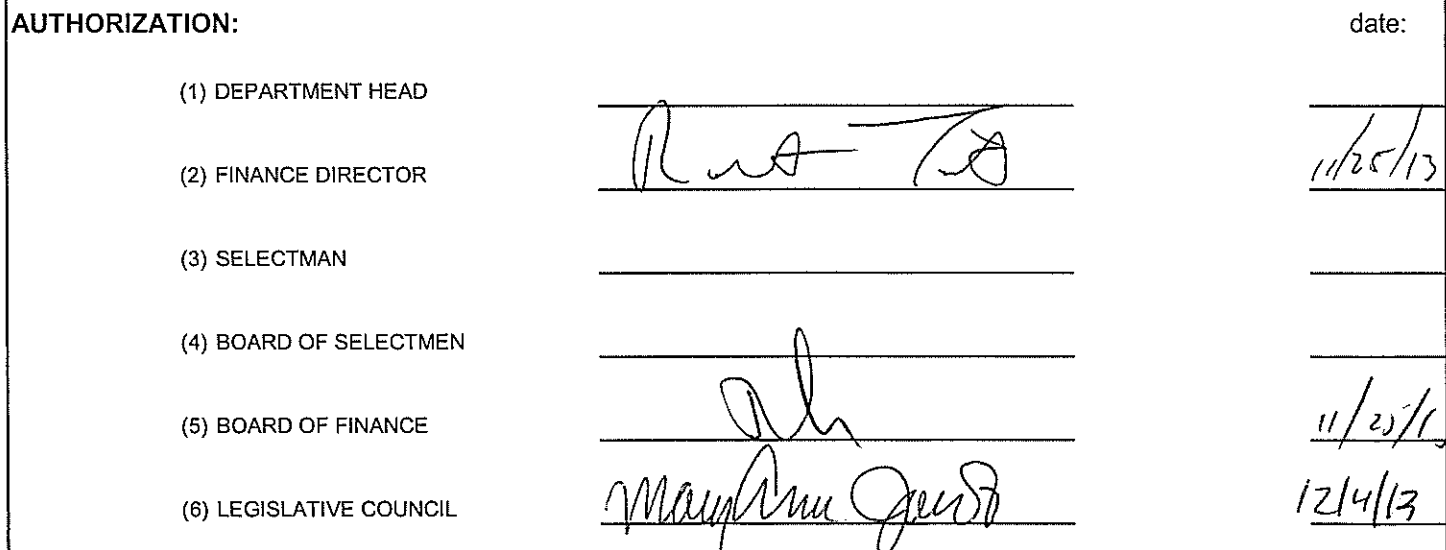 AUTHORIZATION: date:
(1) DEPARTMENT HEAD
(2) FINANCE DIRECTOR 11/25/13
(3) SELECTMAN
(4) BOARD OF SELECTMEN
(5) BOARD OF FINANCE 11/25/1
(6) LEGISLATIVE COUNCIL Mary Ann Jacob 12/4/13